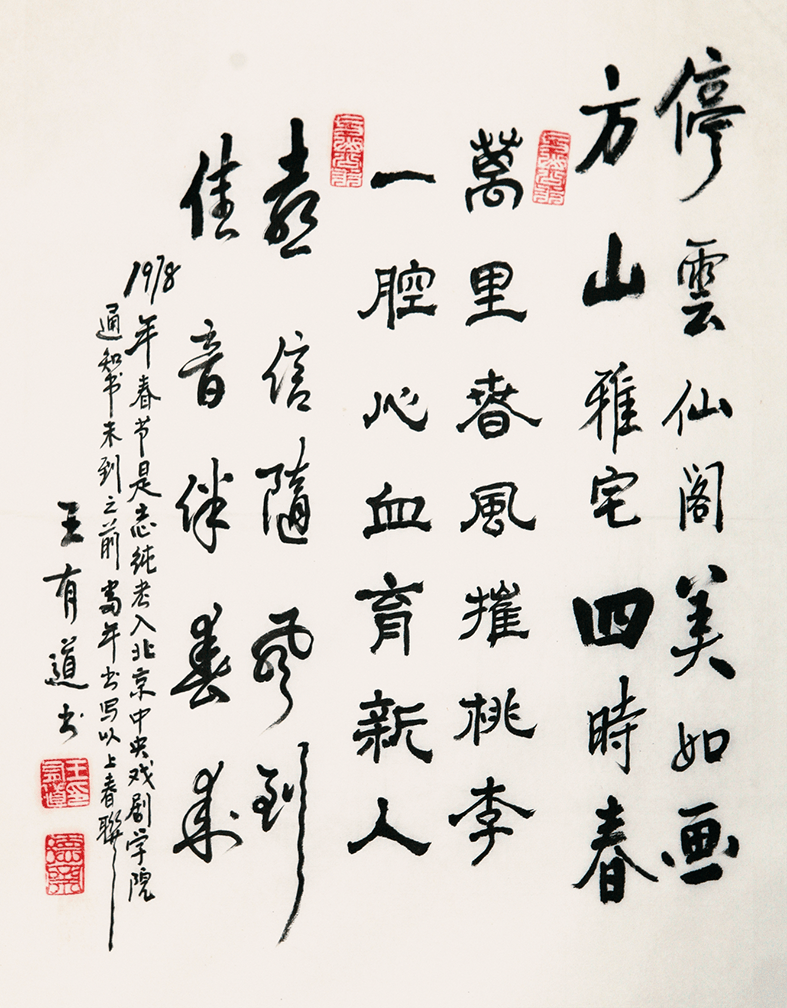 停雲仙阁美如画
方山雅宅四時春
萬里春風摧桃李
一腔心血育新人
喜信隨風到
佳音伴春来
1978年春节是志纯考入北京中央戏剧学院
通知书未到之前當年书写以上春聯
王有道书